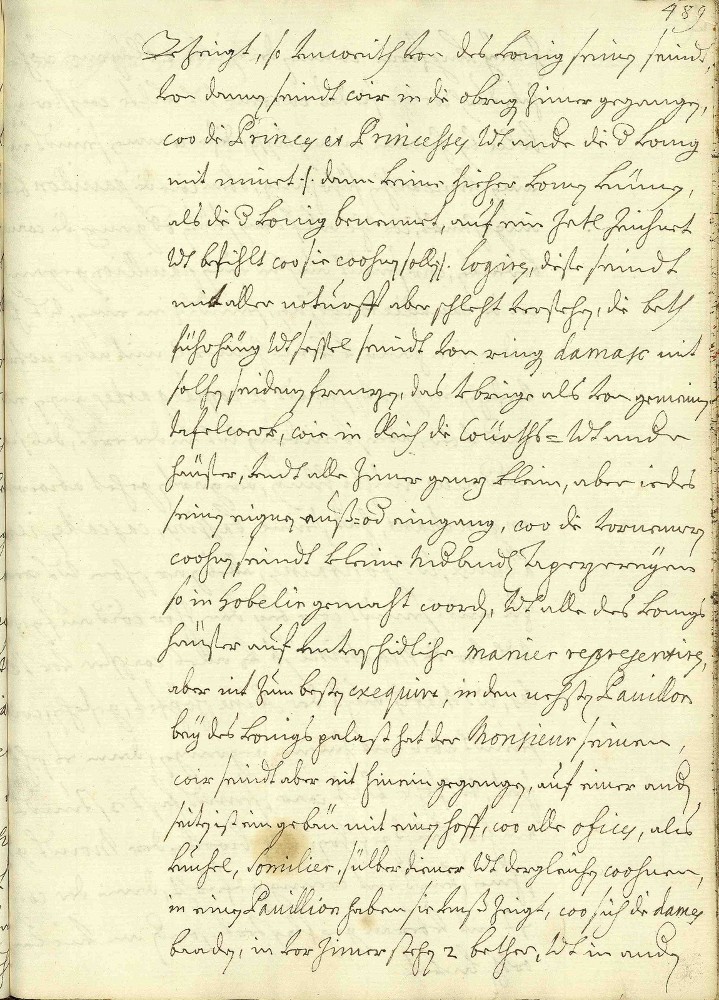 489
gezeigt, so unweith von des König seinen seindt,
von dannen seindt wir in die obrigen Zimer gegangen,
wo die Princen et Princesses Vdt andere die d König
mit nimet :/: dann keiner hieher komen können,
als die d König benennet, auf ein Zetl Zeichnet
Vdt befihlt wo sie wohnen sollen :/: logiren, diese seindt
mit aller noturfft aber schlecht versehen, die beth
fürhäng Vdt sessel seindt von ring damasc mit
solchen seidenen franzen, das Vbrige als von gemeinen
tafelwerk, wie in Reich die Würths= Vdt andere
häuser, Vndt alle Zimer ganz klein, aber iedes
seinen eignen auß= od eingang, wo die vornemen
wohnen, seindt kleine Tapezereyen
so in Gobelin gemacht worden, Vdt alle des Königs
häuser auf Vnterschidliche manier representiren,
aber nit Zum besten exequirt, in den nechsten Pavillon
bey des Königs palast hat der Monsieur seinen,
wir seindt aber nit hinein gegangen, auf einer andern
seiten ist ein gebäu mit einen hoff, wo alle offices, als
kuchel, Somilier, silber diener Vdt dergleichen wohnen,
in einen Pavillion haben sie Vnß Zeigt, wo sich die dames
baaden, in vor Zimer stehen 2 bether, Vdt in andern